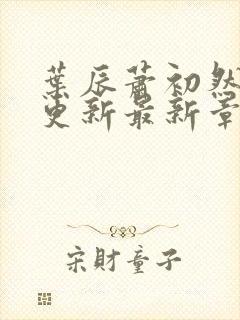 葉辰蕭初然
更新最新章
宋財童子